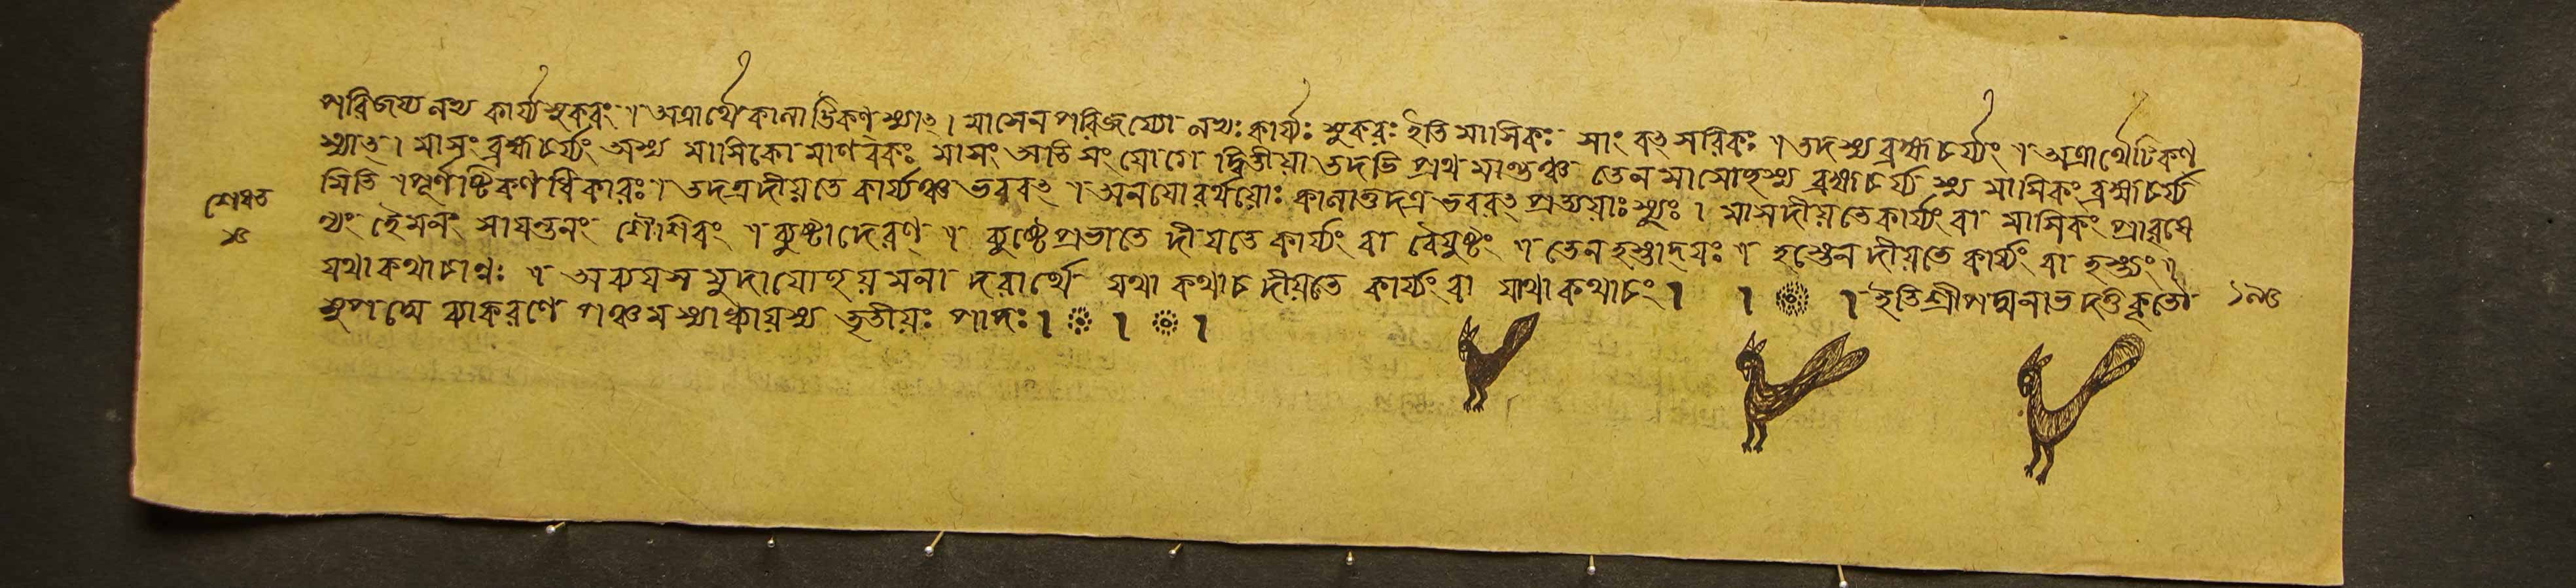 পরিজয্য লভ্য কার্য্যসুকরং । অত্রার্থে কালাট্টিকণ্ স্যাৎ । মাসেন পরিজয্যো লভ্যঃ কার্য্যঃ সুকরঃ ইতি মাসিকঃ সাং বৎসরিকঃ । তদস্য ব্রহ্মচর্য্যং । অত্রার্থেটিকণ্
স্যাৎ । মাসং ব্রহ্মচর্য্যং অস্য মাসিকো মাণবকঃ মাসং অতি সংযোগে দ্বিতীয়া তদতি প্রথমান্তঞ্চ তেন মাসোহস্য ব্রহ্মচর্য্য স্য মাসিকং ব্রহ্মচর্য্য
মিতি । পূর্ণষ্টিকণধিকারঃ । তদত্রদীয়তে কার্য্যঞ্চ ভববৎ । অনয়োরর্থয়োঃ কালাত্তদত্র ভববৎ প্রত্যয়াঃ স্যুঃ । মাসদীয়তেকার্য্যং বা মাসিকং প্রাবৃষে
ণ্যং হৈমনং সায়ন্তনং শৈশিরং । ব্যুষ্টাদেরণ্ । ব্যুষ্টে প্রভাতে দীয়তে কার্য্যং বা বৈয়ুষ্টং । তেন হস্তাদ্যঃ । হস্তেন দীয়তে কার্য্যং বা হস্ত্যং ।
যথাকথাচাণ্ণঃ । অব্যয়সমুদায়োহয়মনাদরার্থে যথা কথাচ দীয়তে কার্য্যং বা যাথাকথাচং । । ইতি শ্রীপদ্মনাভদত্তকৃতৌ
সুপদ্মে ব্যাকরণে পঞ্চমস্যাধ্যায়স্য তৃতীয়ঃ পাদঃ । । ।